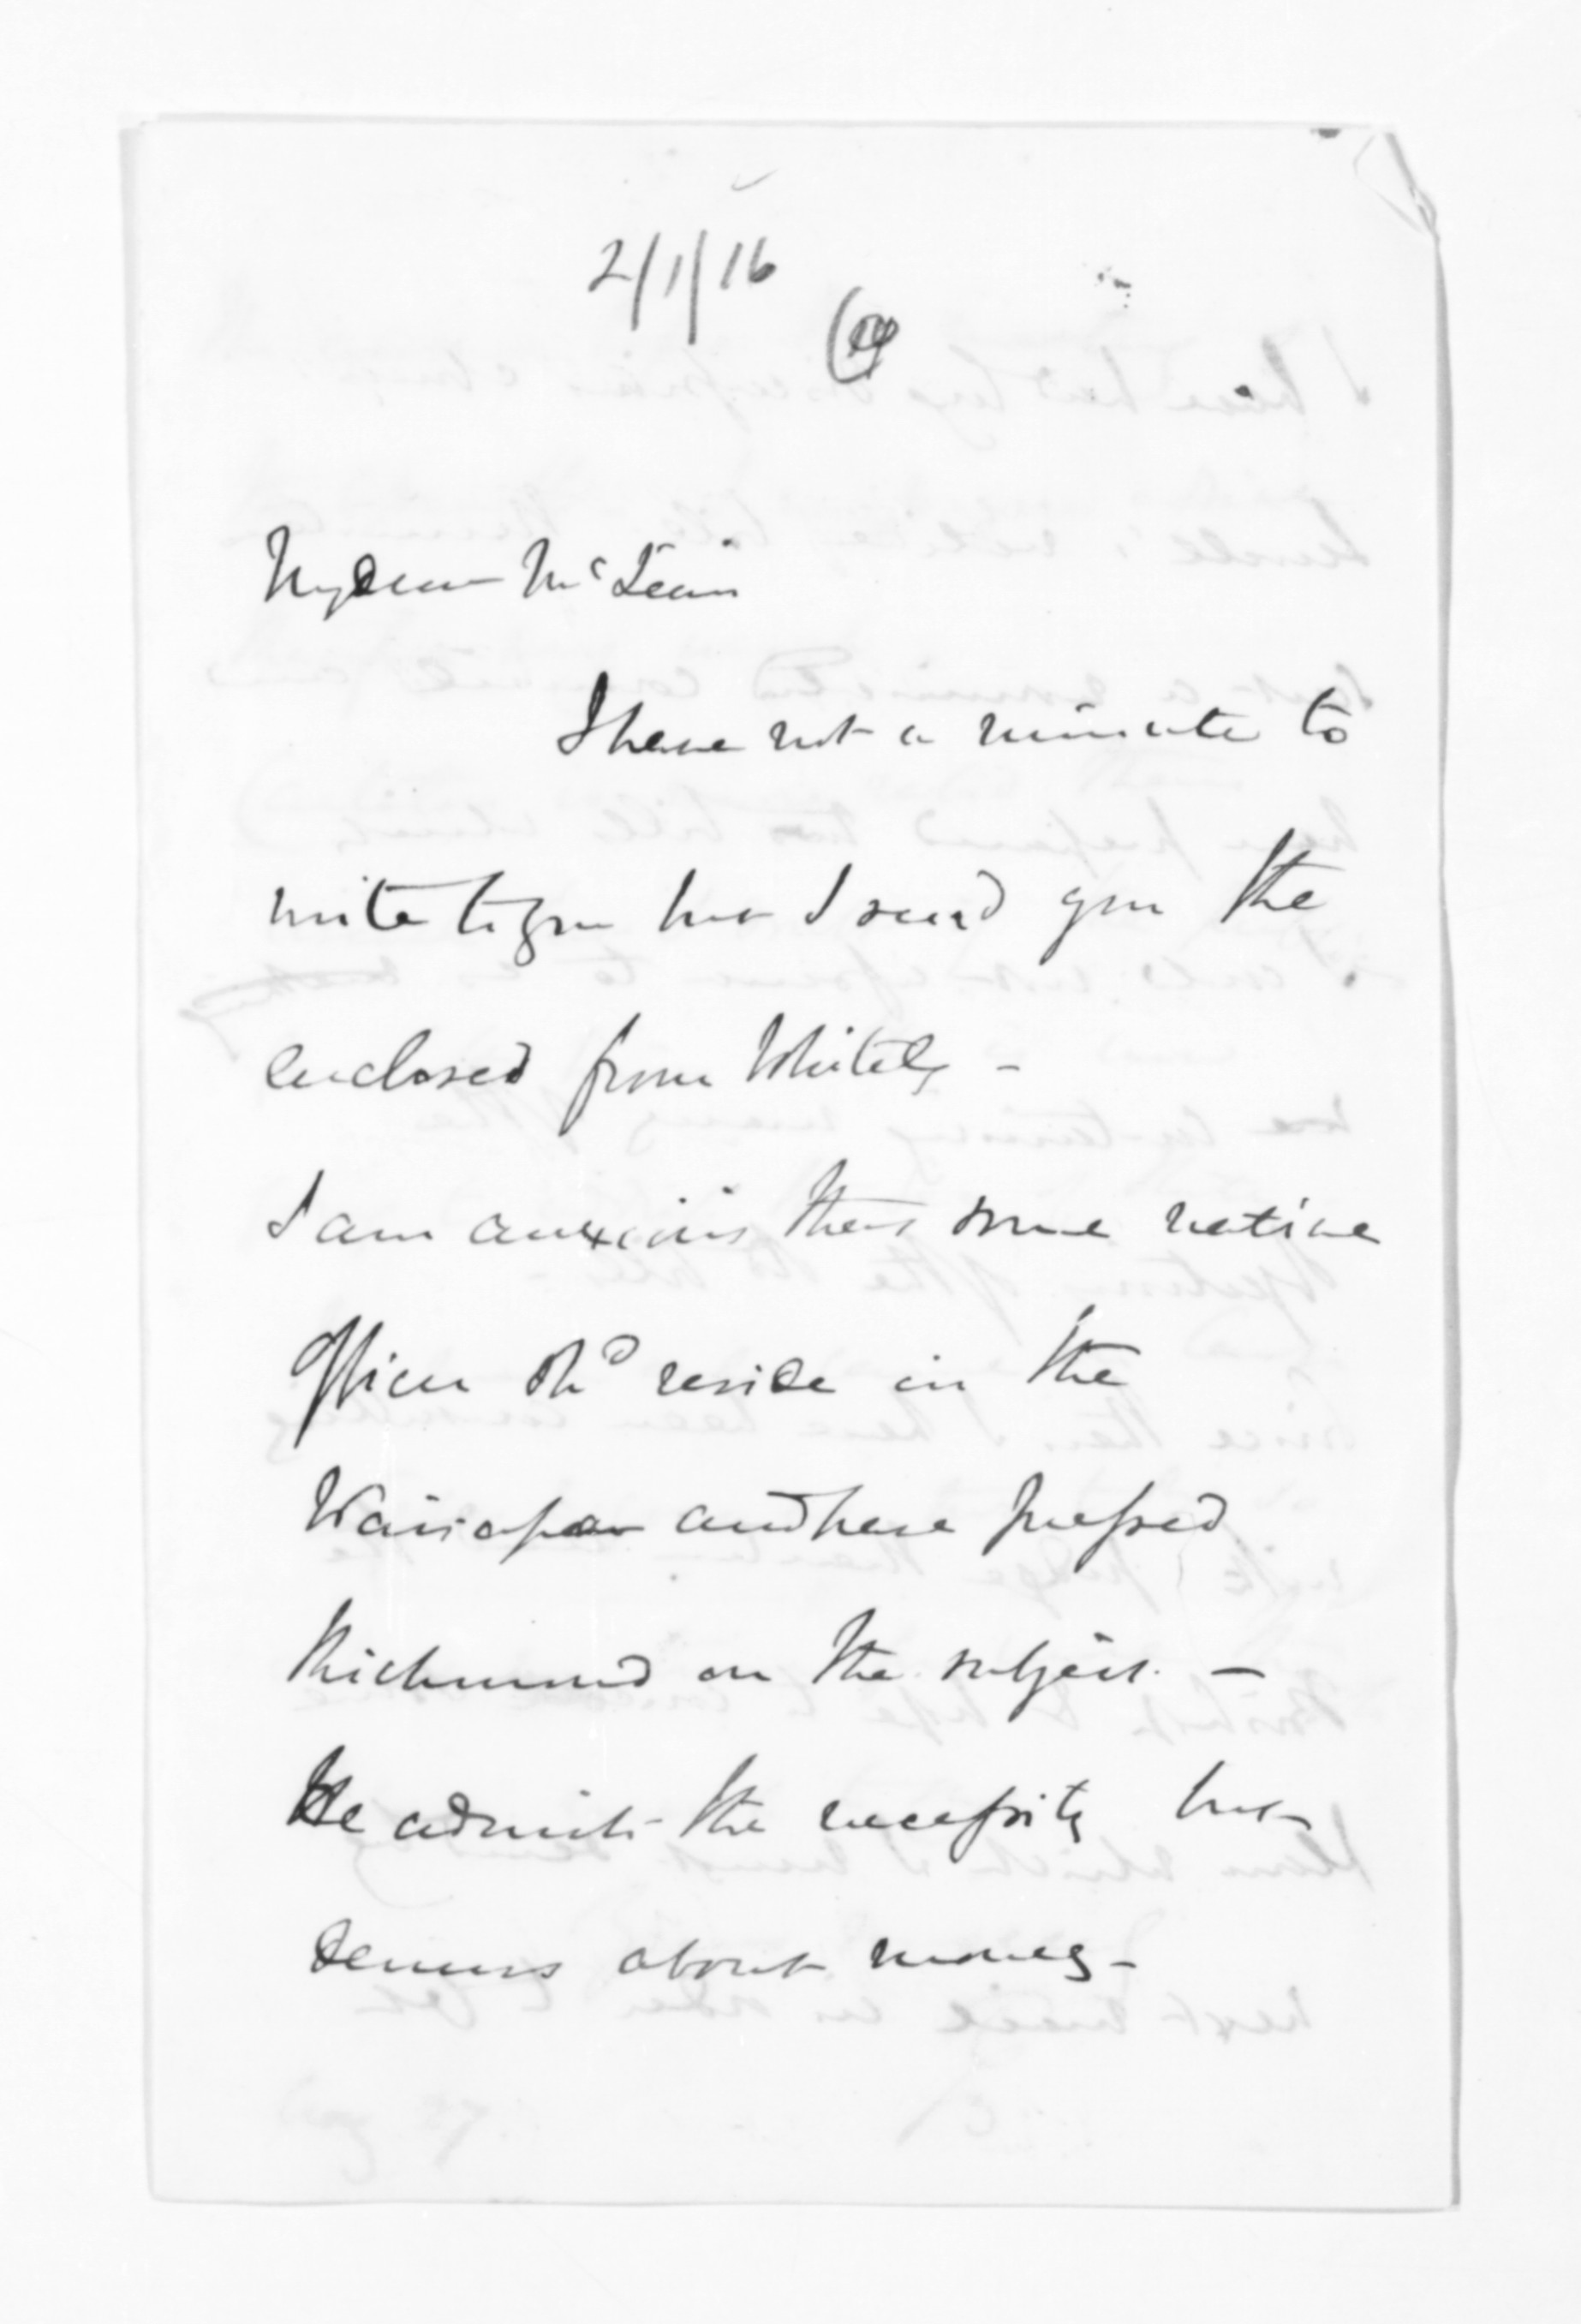 2/1/16
My dear McLean
I have not a minute to
write to you but I send you the
enclosed from Whitely -
I am anxious that some native
Officer shd reside in the
Wairapa and have pressed
Richmond on the subject. -
He admits the necessity but
demurs about money -